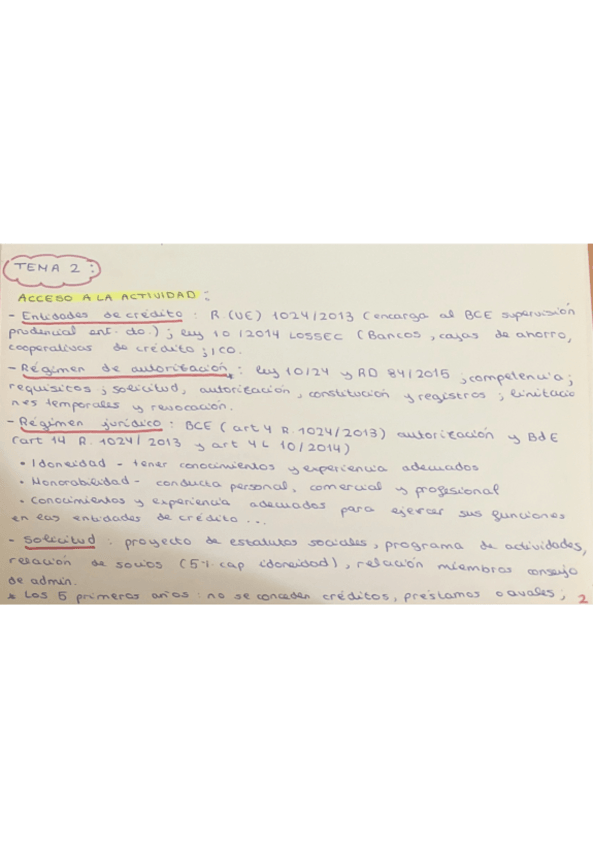 TEMA 2:
ACCESO A LA ACTIVIDAD:
- Entidades de crédito : R (UE) 1024/2013 (encarga al BCE supervisión
prudencial ent. cto.) ; ley 10/2014 LOSSEC (Bancos, cajas de ahorro,
cooperativas de crédito ; ICO.
- Régimen de autorización* : ley 10/24 y RD 84/2015 ; competencia ;
requisitos ; solicitud, autorización, constitución y registros ; limitacio
nes temporales y revocación.
- Régimen jurídico : BCE (art 4 R. 1024/2013) autorización y BdE
(art 14 R. 1024/2013 y art 4 L 10/2014)
• Idoneidad - tener conocimientos y experiencia adecuados
• Honorabilidad - conducta personal, comercial y profesional
• Conocimientos y experiencia adecuados para ejercer sus funciones
en las entidades de crédito ...
- Solicitud : proyecto de estatutos sociales, programa de actividades,
relación de socios (5% cap idoneidad), relación miembros consejo
de admin.
* Los 5 primeros años : no se conceden créditos, préstamos o avales ; 2